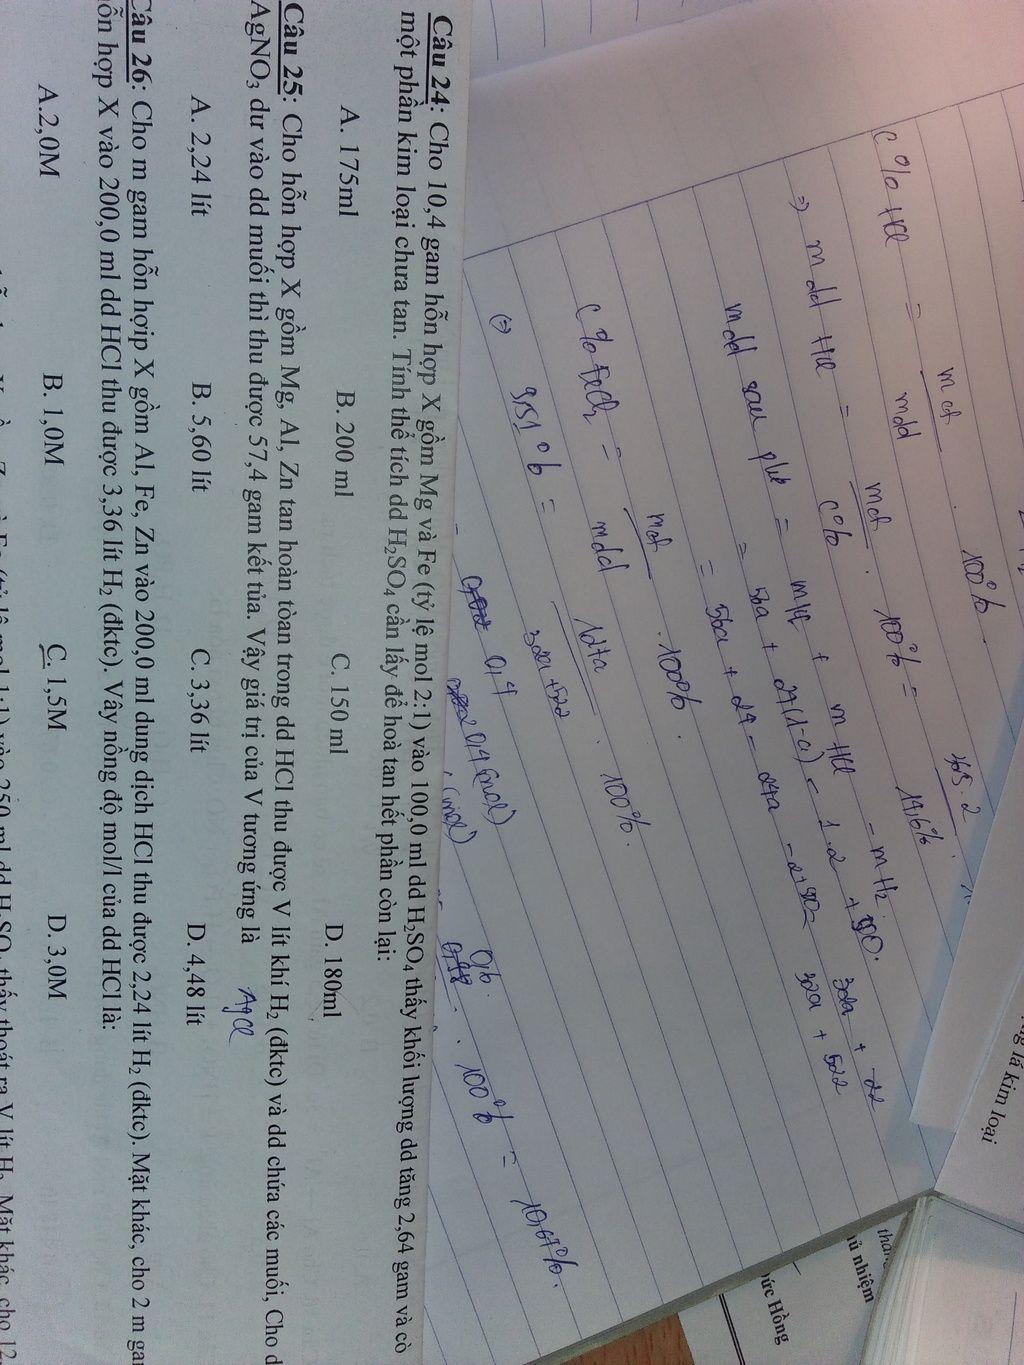 ng lá kim loại
C% HCl = mct / mdd . 100%.
=> mdd HCl = mct . 100% / C% = 36,5.2 / 14,6%
mdd sau pứ = mKL + m HCl - mH2.
= 56a + 24(1-a) - 1.2 + 500.
= 56a + 24 - 24a - 2 + 500
32a + 22
32a + 522
C% FeCl2 = mct / mdd . 100%.
(=) 9,51% = 127a / 32a+522 . 100%.
0,4 0,4 (mol) 0,6.
(mol) . 100% = 10,67%.
Câu 24: Cho 10,4 gam hỗn hợp X gồm Mg và Fe (tỷ lệ mol 2:1) vào 100,0 ml dd H₂SO₄ thấy khối lượng dd tăng 2,64 gam và cò
một phần kim loại chưa tan. Tính thể tích dd H₂SO₄ cần lấy để hoà tan hết phần còn lại:
A. 175ml B. 200 ml C. 150 ml D. 180ml
Câu 25: Cho hỗn hợp X gồm Mg, Al, Zn tan hoàn tòan trong dd HCl thu được V lít khí H₂ (đktc) và dd chứa các muối, Cho d
AgNO₃ dư vào dd muối thì thu được 57,4 gam kết tủa. Vậy giá trị của V tương ứng là AgCl
A. 2,24 lít B. 5,60 lít C. 3,36 lít D. 4,48 lít
Câu 26: Cho m gam hỗn hợip X gồm Al, Fe, Zn vào 200,0 ml dung dịch HCl thu được 2,24 lít H₂ (đktc). Mặt khác, cho 2 m gam
hỗn hợp X vào 200,0 ml dd HCl thu được 3,36 lít H₂ (đktc). Vậy nồng độ mol/l của dd HCl là:
A.2,0M B. 1,0M C. 1,5M D. 3,0M
ủ nhiệm
ức Hồng